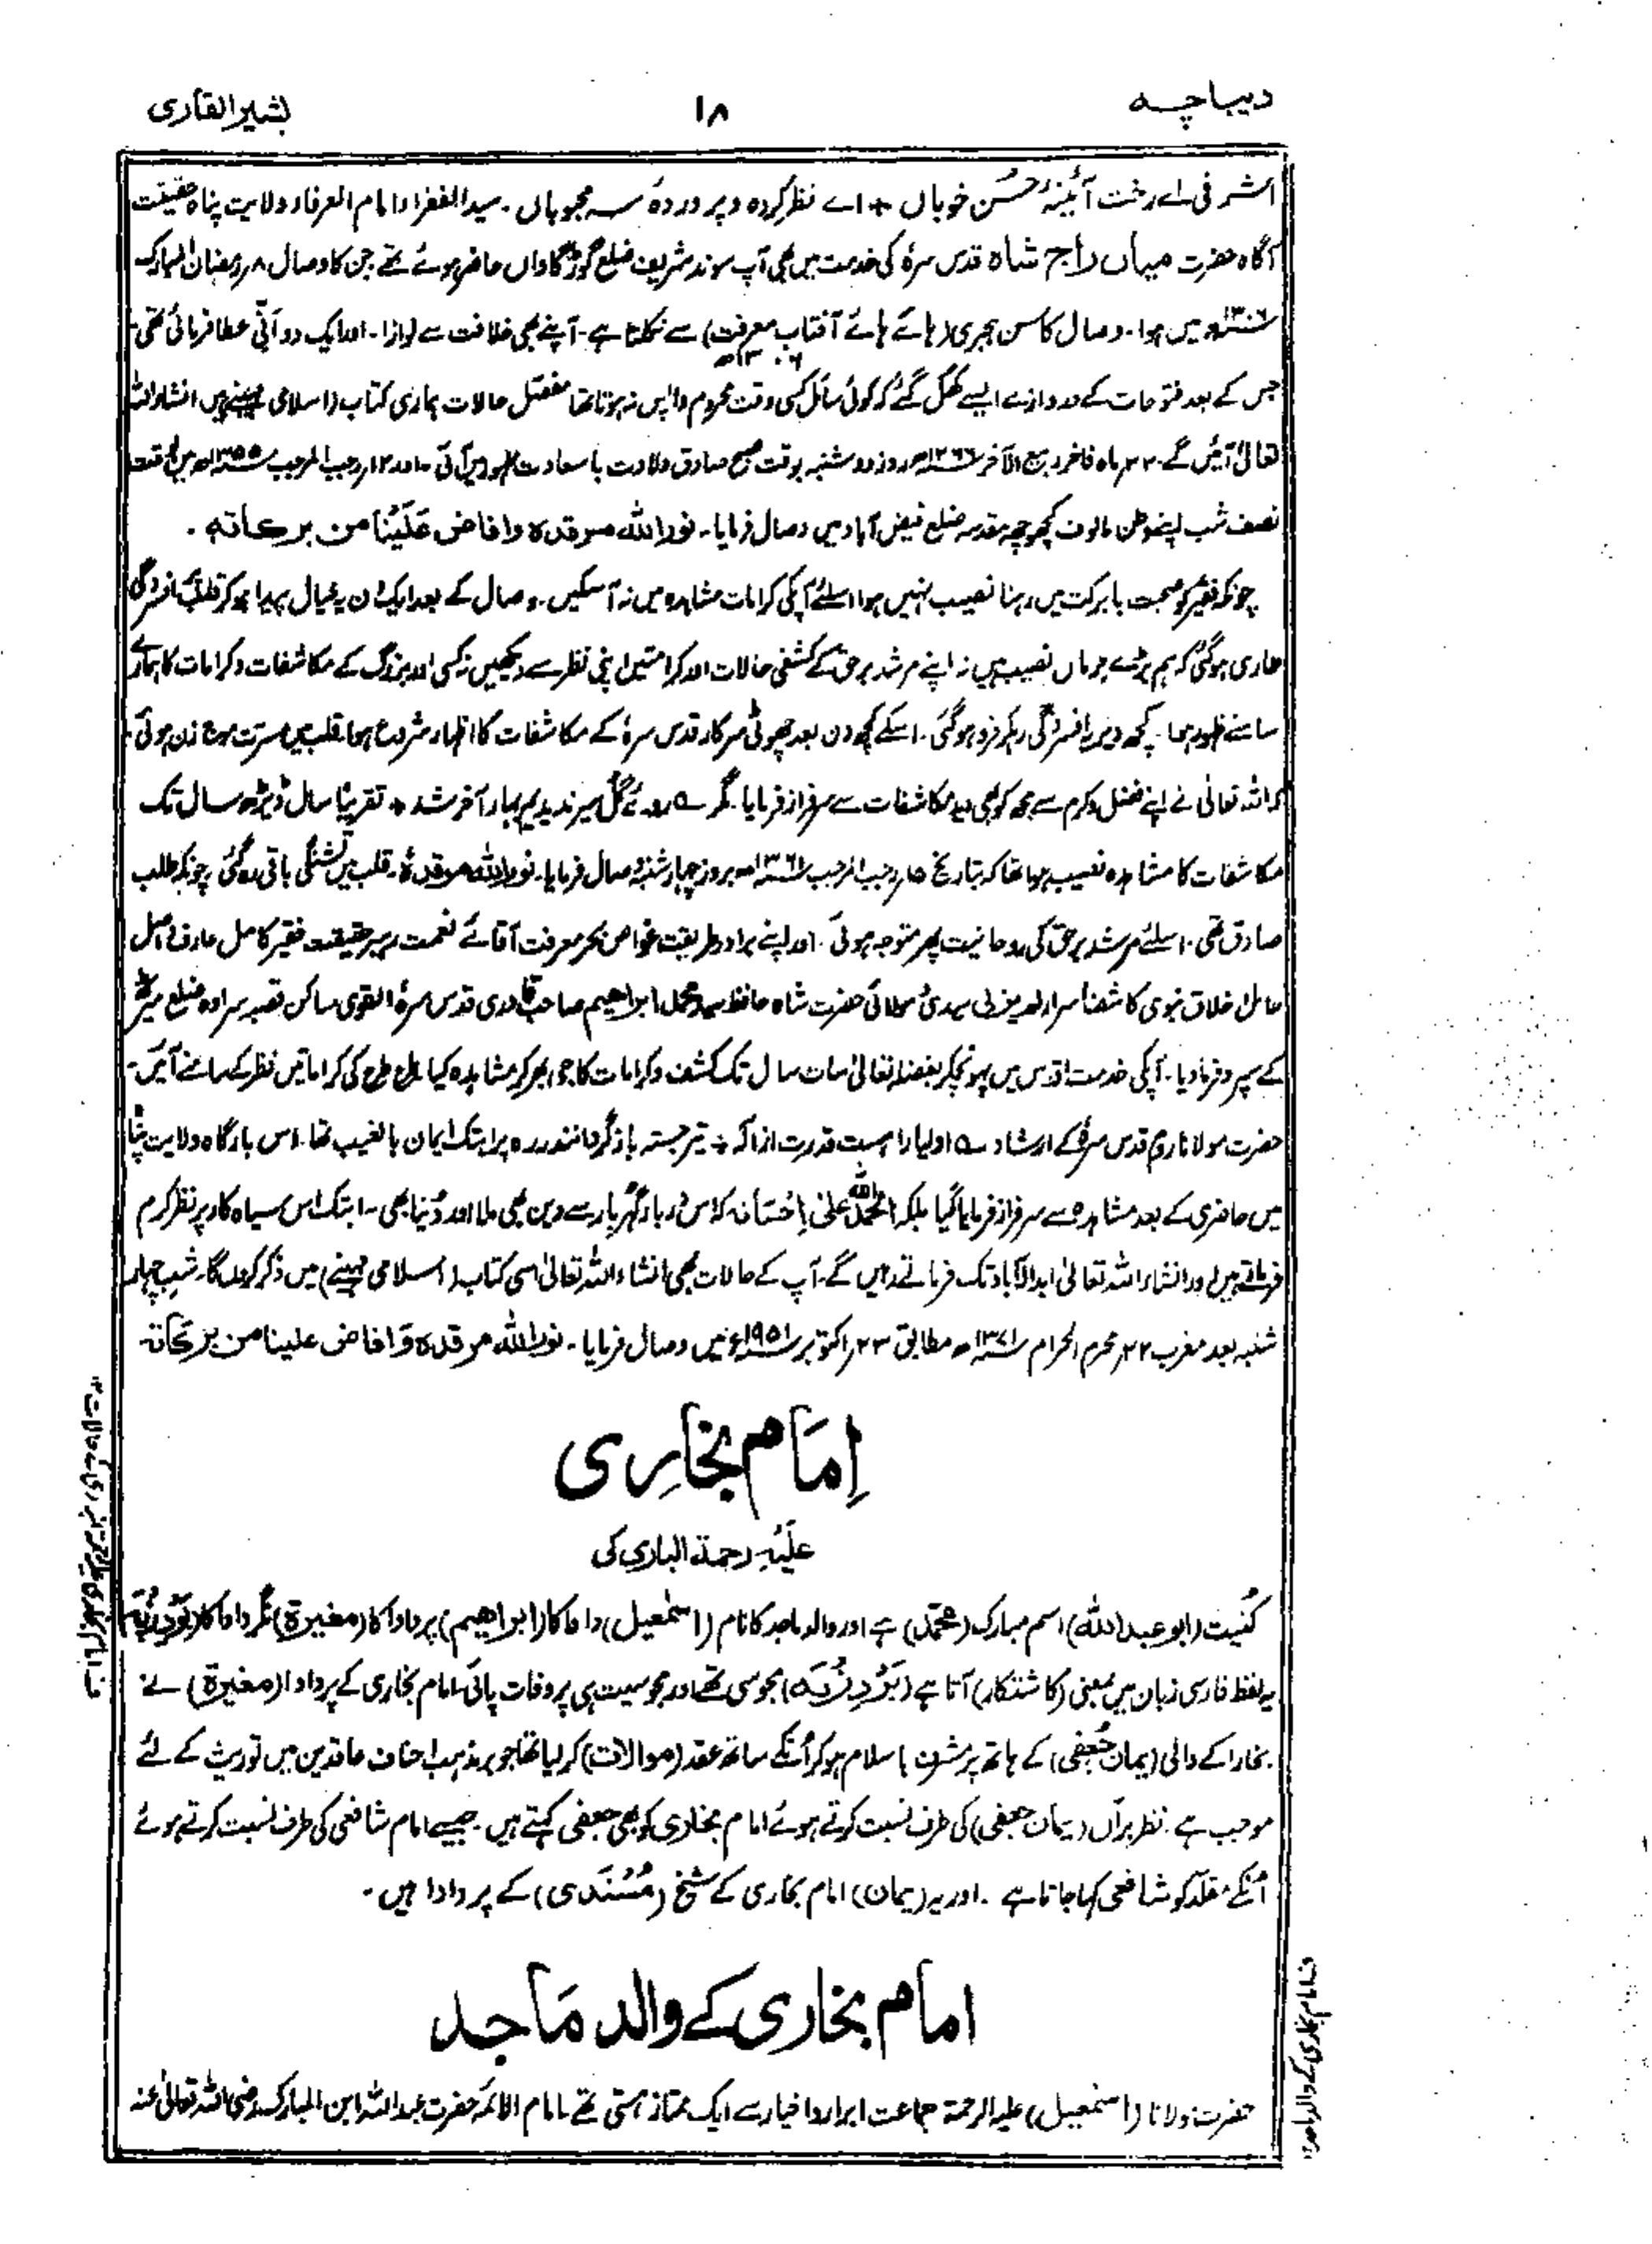 دیباچہ
۱۸
بشیر القاری
اشرفی اے رخت آئینۂ حسن خوباں + اے نظر کردہ و پروردۂ سہ محبوباں ۔ سید الفقراء امام العرفاء ولایت پناہ حقیقت
آگاہ حضرت میاں راج شاہ قدس سرہٗ کی خدمت میں بھی آپ سوندھ شریف ضلع گوڑگاواں حاضر ہوئے تھے جن کا وصال ۸ر رمضان المبارک
۱۳۰۶ھ میں ہوا ۔ وصال کا سن ہجری (ہائے ہائے آفتاب معرفت) سے نکلتا ہے ۔ آپ نے بھی خلافت سے نوازا ۔ اور ایک دوآنّی عطا فرمائی تھی۔
۱۳۰۶ھ
جس کے بعد فتوحات کے دروازے ایسے کھل گئے کہ کوئی سائل کسی وقت محروم واپس نہ ہوتا تھا مفصّل حالات ہماری کتاب (اسلامی مہینے) میں انشاء اللہ
تعالیٰ آئیں گے ۔ ۲۲ر ماہ فاخر ربیع الآخر ۱۲۶۶ھ روز دوشنبہ بوقت صبح صادق ولادت باسعادت ظہور میں آئی ۔ اور ۱۲ر رجب المرجب ۱۳۵۵ھ میں بوقت
نصف شب اپنے وطن مالوف کچھوچھہ مقدسہ ضلع فیض آباد میں وصال فرمایا ۔ نور اللہ مرقدہ وافاض عَلَیْنَا من برکاتہ ۔
چونکہ فقیر کو صحبت بابرکت میں رہنا نصیب نہیں ہوا اسلئے آپکی کرامات مشاہدہ میں نہ آسکیں ۔ وصال کے بعد ایک دن یہ خیال پیدا ہوکر قلب پر افسردگی
طاری ہوگئی کہ ہم بڑے حرماں نصیب ہیں نہ اپنے مرشد برحق کے کشفی حالات اور کرامتیں اپنی نظر سے دیکھیں نہ کسی اور بزرگ کے مکاشفات و کرامات کا ہمارے
سامنے ظہور ہوا ۔ کچھ دیر یہ افسردگی رہکر فرد ہوگئی ۔ اسکے کچھ دن بعد چھوٹی سرکار قدس سرہٗ کے مکاشفات کا اظہار شروع ہوا قلب میں مسرت موجزن ہوئی
کہ اللہ تعالیٰ نے اپنے فضل و کرم سے مجھ کو بھی دید مکاشفات سے سرفراز فرمایا ۔ مگر ؎ روئے گل سیر ندیدیم بہار آخر شد + تقریبًا سال ڈیڑھ سال تک
مکاشفات کا مشاہدہ نصیب ہوا تھا کہ بتاریخ ۱۵ر رجب المرجب ۱۳۶۱ھ بروز چہار شنبہ وصال فرمایا ۔ نور اللہ مرقدہٗ ۔ قلب میں تشنگی باقی رہ گئی ۔ چونکہ طلب
صادق تھی ۔ اسلئے مرشد برحق کی روحانیت پھر متوجہ ہوئی ۔ اور اپنے برادر طریقت غواص بحر معرفت آقائے نعمت رہبر حقیقت فقیر کامل عارف واصل
حامل اخلاق نبوی کاشف اسرار لم یزلی سیدی مولائی حضرت شاہ حافظ سید محمد ابراھیم صاحب قادری قدس سرہٗ القوی ساکن قصبہ سراوہ ضلع میرٹھ
کے سپرد فرمادیا ۔ آپکی خدمت اقدس میں پہونچکر بفضلہ تعالیٰ سات سال تک کشف و کرامات کا جی بھر کر مشاہدہ کیا طرح طرح کی کراماتیں نظر کے سامنے آئیں ۔
حضرت مولانا روم قدس سرہٗ کے ارشاد ؎ اولیا را ہست قدرت از الٰہ + تیر جستہ باز گردانند ز راہ پر ابتک ایمان بالغیب تھا ۔ اس بارگاہ ولایت پناہ
میں حاضری کے بعد مشاہدہ سے سرفراز فرمایا گیا بلکہ الحمدللہ علیٰ اِحْسَانِہٖ کہ اس دربار گہر بار سے دین بھی ملا اور دُنیا بھی ۔ ابتک اس سیاہ کار پر نظر کرم
فرماتے ہیں اور انشاء اللہ تعالیٰ ابد الآباد تک فرماتے رہیں گے ۔ آپ کے حالات بھی انشاء اللہ تعالیٰ اسی کتاب (اسلامی مہینے) میں ذکر کروں گا ۔ شب چہار
شنبہ بعد مغرب ۲۲ر محرم الحرام ۱۳۷۱ھ مطابق ۲۳ر اکتوبر ۱۹۵۱ء میں وصال فرمایا ۔ نور اللہ مرقدہ وَ افاض علینا من برکاتہ
اِمَام بخَارِی
عَلَیْہِ رحمۃ الباری کی
کُنیت (ابو عبد اللہ) اسم مبارک (محمّد) ہے اور والد ماجد کا نام (اسمٰعیل) دادا کا (ابراھیم) پردادا کا (مغیرۃ) نگر دادا کا (بَرْدِزْبَہ)
یہ لفظ فارسی زبان میں بمعنی (کاشتکار) آتا ہے (بَرْدِزْبَہ) مجوسی تھے اور مجوسیت ہی پر وفات پائی ۔ امام بخاری کے پردادا (مغیرۃ) نے
بخارا کے والی (یمان جُعفِی) کے ہاتھ پر مشرف باسلام ہوکر اُنکے ساتھ عقد (موالات) کرلیا تھا جو بر مذہب احناف عاقدین میں توریث کے لئے
موجب ہے ۔ نظر برآں (یمان جعفی) کی طرف نسبت کرتے ہوئے امام بخاری کو بھی جعفی کہتے ہیں ۔ جیسے امام شافعی کی طرف نسبت کرتے ہوئے
اُنکے مقلّد کو شافعی کہا جاتا ہے ۔ اور یہ (یمان) امام بخاری کے شیخ (مُسْنَدی) کے پردادا ہیں ۔
امام بخاری کے والد مَاجد
حضرت مولانا (اسمٰعیل) علیہ الرحمۃ جماعت ابرار و اخیار سے ایک ممتاز ہستی تھے ۔ امام الائمہ حضرت عبد اللہ ابن المبارک رضی اللہ تعالیٰ عنہ